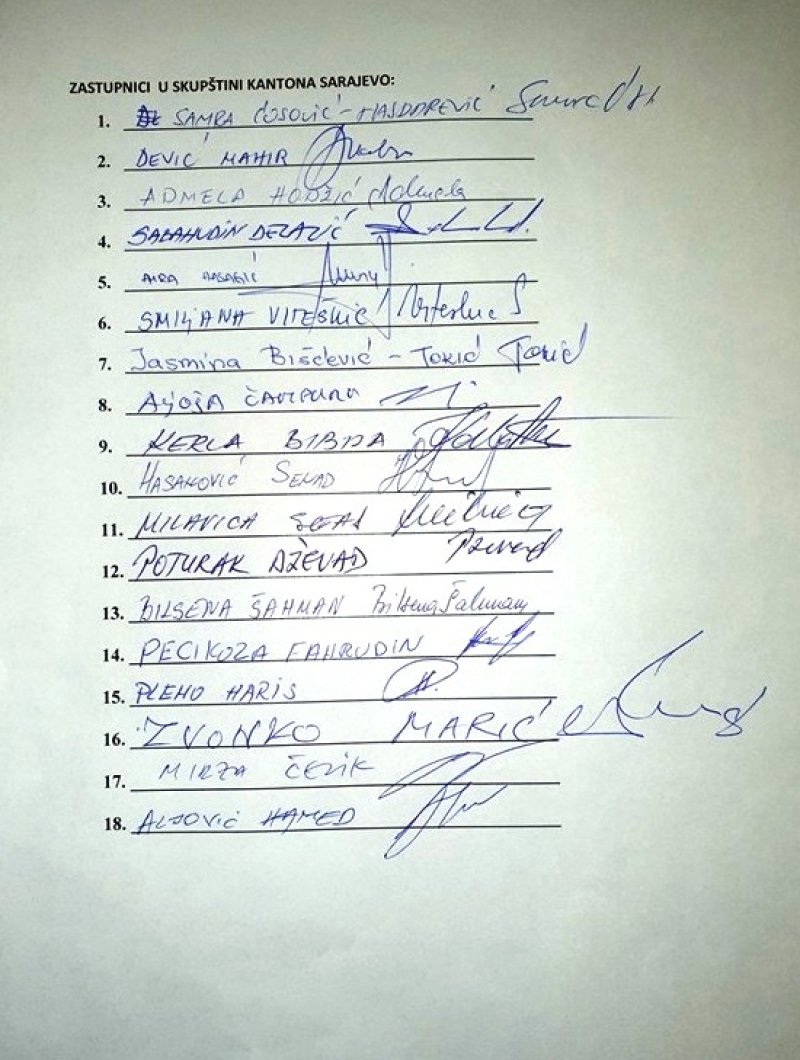 ZASTUPNICI U SKUPŠTINI KANTONA SARAJEVO:
1. SAMRA ĆOSOVIĆ - HAJDAREVIĆ
2. DEVIĆ MAHIR
3. ADMELA HODŽIĆ Admela
4. SALAHUDIN DELALIĆ
5.
6. SMILJANA VITEŠKIĆ Viteskic S
7. Jasmina Bišćević - TOKIĆ Tokić
8. ČAMPARA
9. KERLA BIBIJA
10. HASANOVIĆ SENAD
11. MILAVICA SEJAD
12. POTURAK DŽEVAD Dževad
13. BILSENA ŠAHMAN Bilsena Šahman
14. PECIKOZA FAHRUDIN
15. PLEHO HARIS
16. ZVONKO MARIĆ
17. MIRZA ČELIK
18. ALJOVIĆ HAMED